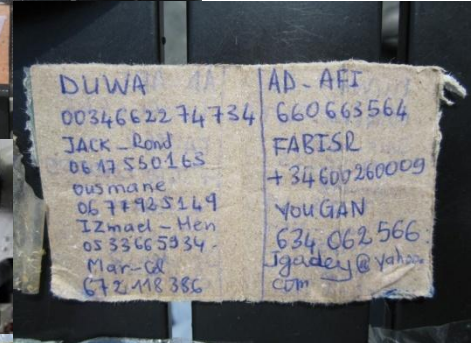 DUWA
0034662274734
JACK_Rond
0617550165
ousmane
0677925149
IZmael-Hen
0533665934-
Mar-Cd
672118386
AD-AFI
660663564
FABISR
+34600260009
YOUGAN
634 062 566.
Jgadey@yahoo
com